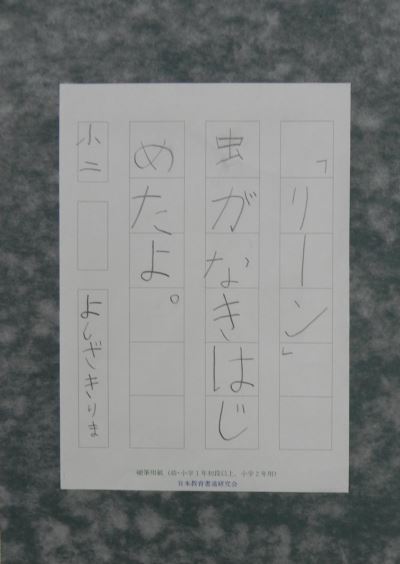 「リーン」
虫がなきはじ
めたよ。
小二
よしざきりま
硬筆用紙（幼・小学1年初段以上、小学2年用）
日本教育書道研究会